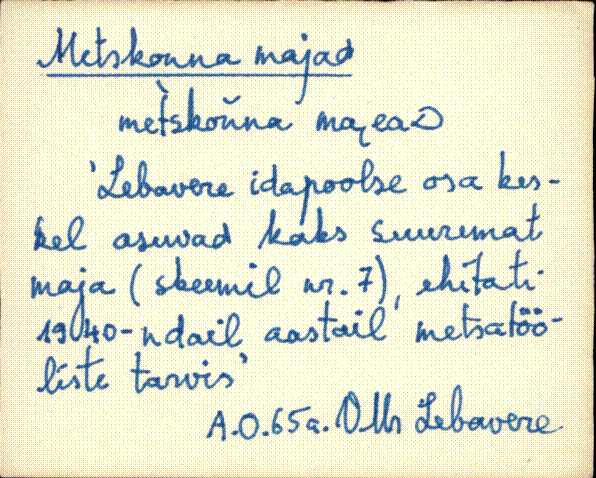 Metskonna majad
mètskoǹna majeaD
'Lebavere idapoolse osa kes-
kel asuvad kaks suuremat
maja (skeemil nr. 7), ehitati
1940-ndail aastail metsatöö-
liste tarvis'
A.O.65a. VMr Lebavere